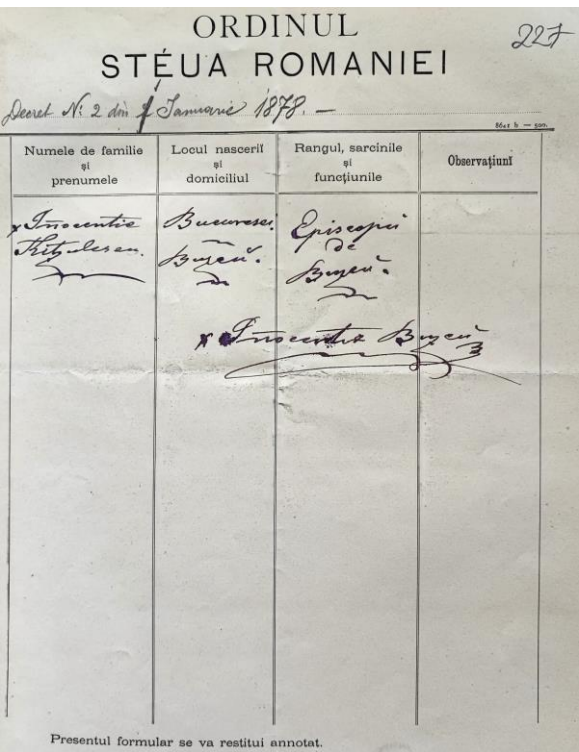 ORDINUL
227
STÉUA ROMANIEI
Decret No: 2 din Ianuarie 1878. —
Numele de familie
și
prenumele
Locul nascerii
și
domiciliul
Rangul, sarcinile
și
funcțiunile
Observațiunĭ
x Inocentie
Kițulescu.
Bucuresci.
Buzeŭ.
Episcopu
de
Buzeŭ.
x Inocentie Buzeŭ
Presentul formular se va restitui annotat.